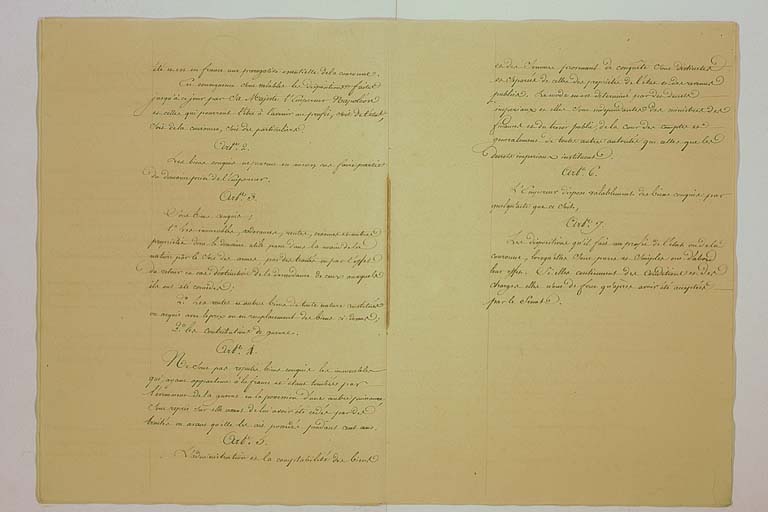 été et est en france une prerogative essentielle de la couronne.
En consequence sont valables les dispositions faites
jusqu'à ce jour par Sa Majesté l'Empereur Napoléon
et celles qui pourront l'être à l'avenir au profit, soit de l'état,
soit de la couronne, soit des particuliers.
Art. 2.
Les biens conquis ne peuvent en aucun cas faire partie
du domaine privé de l'Empereur.
Art. 3.
Sont biens conquis;
1.º Les immeubles, créances, rentes, et autres
propriétés dont le domaine était passé dans la main de la
nation par le sort des armes, par des traités ou par l'effet
du retour en cas d'extinction de la descendance de ceux auxquels
ils ont été concédés;
2.º Les rentes et autres biens de toute nature constitués
ou acquis avec le prix ou en remplacement des biens ci dessus;
3.º les contributions de guerre.
Art. 4.
Ne sont pas reputés biens conquis les immeubles
qui, ayant appartenu à la france et étant tombés par
l'événement de la guerre en la possession d'une autre puissance,
sont repris sur elle avant de lui avoir été cédés par des
traités ou avant qu'elle les ait possédés pendant cent ans.
Art. 5.
L'administration et la comptabilité des biens
et des revenus provenant de conquête sont distinctes
et séparées de celles des propriétés de l'état et des revenus
publics. Le mode en est déterminé par des décrets
impériaux et elles sont indépendantes des ministres des
finances et du trésor public, de la cour des comptes et
généralement de toute autre autorité que celles que les
Decrets impériaux instituent.
Art. 6.
L'Empereur dispose valablement des biens conquis par
quelqu'acte que ce soit.
Art. 7
Les dispositions qu'il fait au profit de l'état ou de la
couronne, lorsqu'elles sont pures et simples ont d'abord
leur effet. Si elles contiennent des conditions et des
charges elles n'ont de force qu'après avoir été acceptées
par le Sénat.